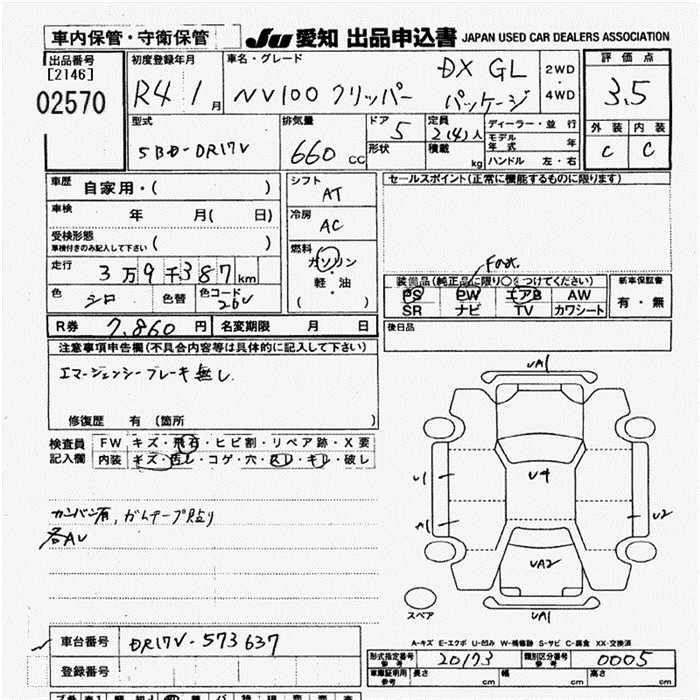 車内保管・守衛保管
JU 愛知 出品申込書 JAPAN USED CAR DEALERS ASSOCIATION
出品番号
[2146]
02570
初度登録年月
R4 1月
車名・グレード
NV100クリッパー DX GL パッケージ
2WD
4WD
評価点
3.5
外装 内装
C C
型式
5BD-DR17V
排気量
660 CC
ドア
5
形状
定員
2(4)人
積載
kg
ディーラー・並行
モデル年式 年
ハンドル 左・右
車歴
自家用・( )
車検
年 月( 日)
受検形態
車検付きのみ記入して下さい
( )
走行
3万9千387km
色
シロ
色替
色コード
26V
シフト
AT
冷房
AC
燃料
ガソリン
・
軽・油
( )
セールスポイント(正常に機能するものに限ります)
Fのみ
装備品(純正品に限り○をつけてください)
PS PW エアB AW
SR ナビ TV カワシート
新車保証書
有・無
R券 7,860円 名変期限 月 日
後日品
注意事項申告欄(不具合内容等は具体的に記入して下さい)
エマージェンシーブレーキ無し
修復歴 有(箇所 )
検査員
記入欄
FW キズ・飛石・ヒビ割・リペア跡・X要
内装 キズ・汚レ・コゲ・穴・スレ・キレ・破し
カンバン有, ガムテープ貼り
各AU
UA1
U1
A1
U4
U2
UA2
UA1
スペア
A-キズ E-エクボ U-凹み W-補修跡 S-サビ C-腐食 XX-交換済
車台番号 DR17V-573637
登録番号
形式指定番号
参考
20173
類別区分番号
参考
0005
車庫証明用
参考
長さ cm 幅 cm 高さ cm